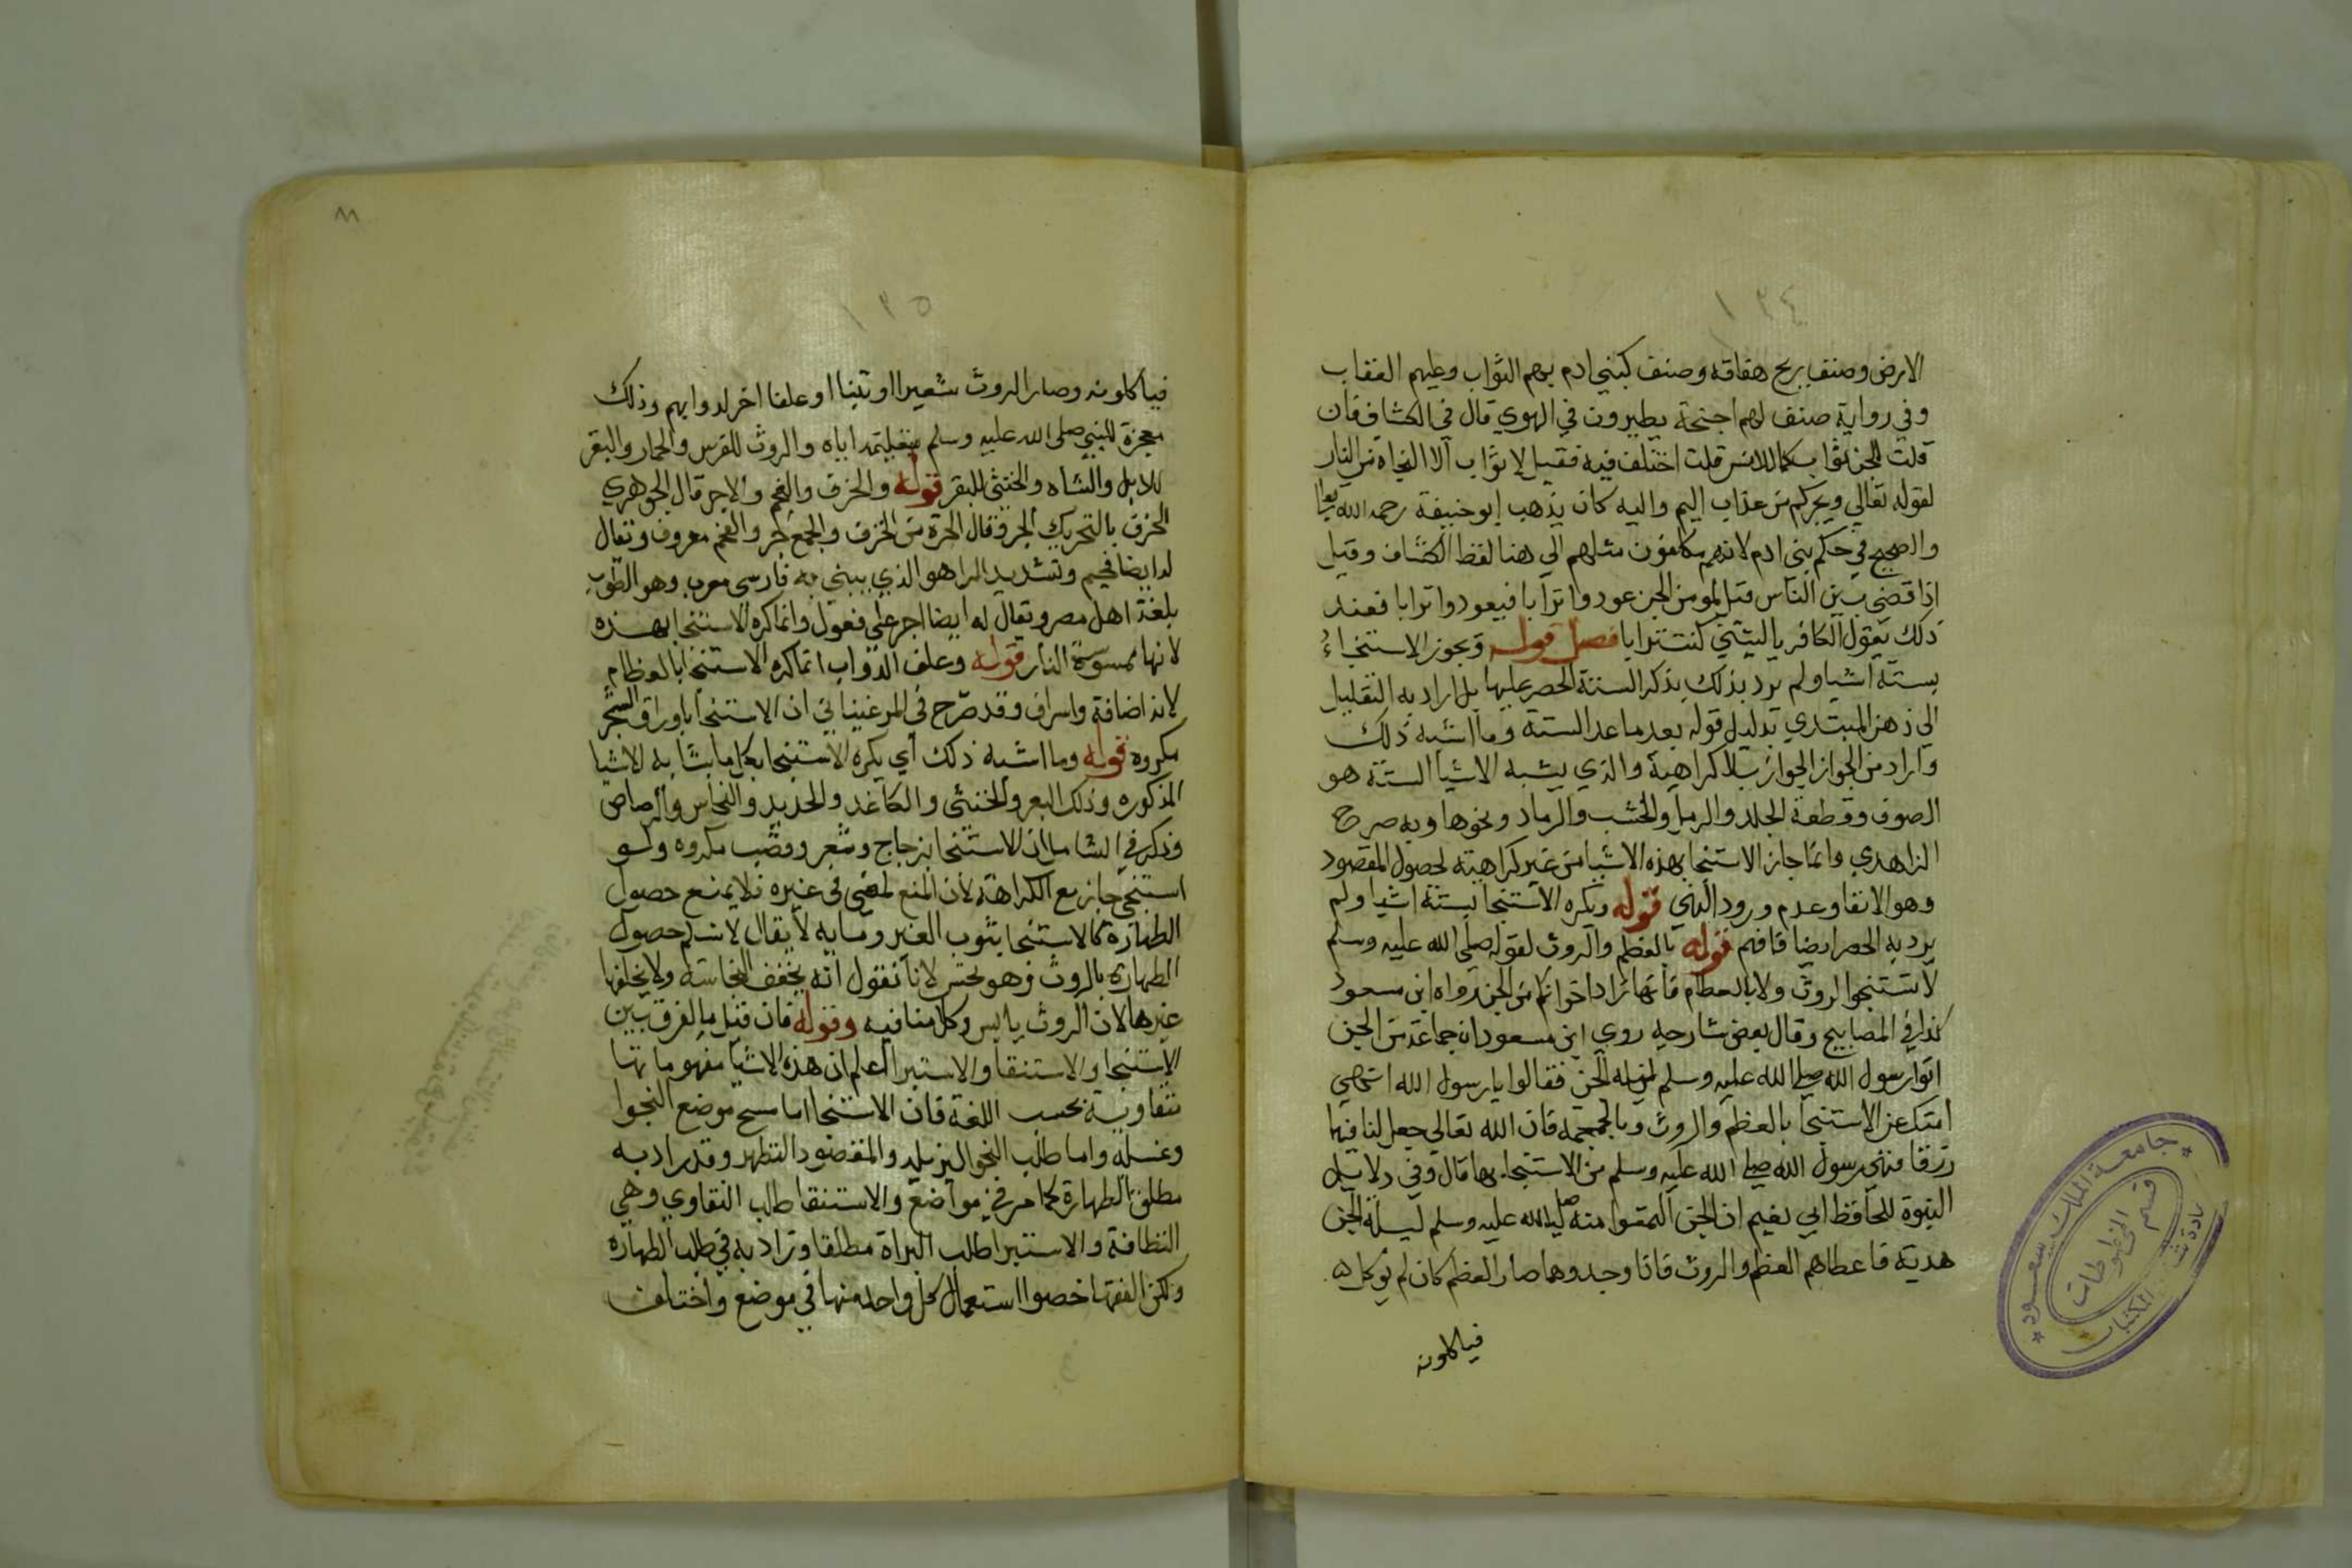 ١٣٤
الارض وصنف ريح هفافه وصنف كبني ادم لهم الثواب وعليهم العقاب
وفي رواية صنف لهم اجنحة يطيرون في الهوي قال في الكشاف فان
قلت للجن ثواب كما للانس قلت اختلف فيه فقيل لا ثواب الا النجاه من النار
لقوله تعالي ويجركم من عذاب اليم واليه كان يذهب ابو حنيفة رحمه الله
والصحيح في حكم بني ادم لانهم مكلفون مثلهم الي هنا لفظ الكشاف وقيل
اذا قضي بين الناس قيل لمومن الجن عودوا ترابا فيعودوا ترابا فعند
ذلك يقول الكافر ياليتني كنت ترابا فصل قوله ويجوز الاستنجاء
بستة اشيا ولم يرد بذلك بذكر الستة الحصر عليها بل اراد به التقليل
الي ذهن المبتدي بدليل قوله بعد ما عد الستة وما اشبه ذلك
واراد من الجواز الجواز بلا كراهية والذي يشبه الاشيا الستة هو
الصوف وقطعة الجلد والرمل والخشب والرماد ونحوها وبه صرح
الزاهدي وانما جاز الاستنجا بهذه الاشيا من غير كراهية لحصول المقصود
وهو الانقا وعدم ورود النهي قوله ويكره الاستنجا بستة اشيا ولم
يرد به الحصر ايضا فافهم قوله بالعظم والروث لقوله صلي الله عليه وسلم
لا تستنجوا لروث ولا بالعظام فانها زاد اخوانكم من الجن رواه ابن مسعود
كذا في المصابيح وقال بعض شارحيه روي ابن مسعود ان جماعة من الجن
اتوا رسول الله صلي الله عليه وسلم ليلة الجن فقالوا يا رسول الله انهي
امتك عن الاستنجا بالعظم والروث وبالجمجمة فان الله تعالي جعل لنا فيها
رزقا فنهي رسول الله صلي الله عليه وسلم من الاستنجا بها قال وفي دلايل
النبوة للحافظ ابي نعيم ان الجن التمسوا منه صلي الله عليه وسلم ليلة الجن
هدية فاعطاهم العظم والروث فاذا وجدوهما صار العظم كان لم يوكل
فياكلونه
جامعة الملك سعود
قسم المخطوطات
المكتبات
١٣٥
٨٨
فياكلونه وصار الروث شعيرا او تبنا او علفا اخر لدوابهم وذلك
معجزة للنبي صلي الله عليه وسلم والروث للفرس والحمار والبقر
للابل والشاه والخنثي للبقر قوله والخزف والفحم والاجر قال الجوهري
الخزف بالتحريك الجر وقال الجرة من الخزف والجمع جر والفحم معروف وتقال
له ايضا فحيم وتشديد الراهو الذي يبني به فارسي معرب وهو الطوب
بلغة اهل مصر وتقال له ايضا اجر علي فعول وانما كره الاستنجا بهذه
لانها ممسوسة النار قوله وعلف الدواب انما كره الاستنجا بالعظام
لانه اضافة واسراف وقد صرح في المرغيناني ان الاستنجا باوراق الشجر
مكروه قوله وما اشبه ذلك اي يكره الاستنجا بكل ما يشابه الاشيا
المذكوره وذلك البعر والخنثي والكاغد والحديد والنحاس والرصاص
وذكر في الشامل ان الاستنجا بزجاج وشعر وقصب مكروه ولو
استنجي جاز مع الكراهة لان المنع لمعني في غيره فلا يمنع حصول
الطهارة كما لاستنجا بثوب الغير ومايه لا يقال لا نسلم حصول
الطهارة بالروث وهو نجس لانا نقول انه يخفف النجاسة ولا يخلفها
غيرها لان الروث يابس وكلامنا فيه وقوله فان قيل ما الفرق بين
الاستنجا والاستنقا والاستبرا اعلم ان هذه الاشيا مفهوماتها
متفاوتة بحسب اللغة فان الاستنجا اما مسح موضع النجوا
وغسله واما طلب النجو ليزيله والمقصود التطهر وقد يراد به
مطلق الطهارة كما مر في مواضع والاستنقا طلب النقاوي وهي
النظافة والاستبرا طلب البراة مطلقا وتراد به في طلب الطهاره
ولكن الفقها خصوا استعمال كل واحد منها في موضع واختلف